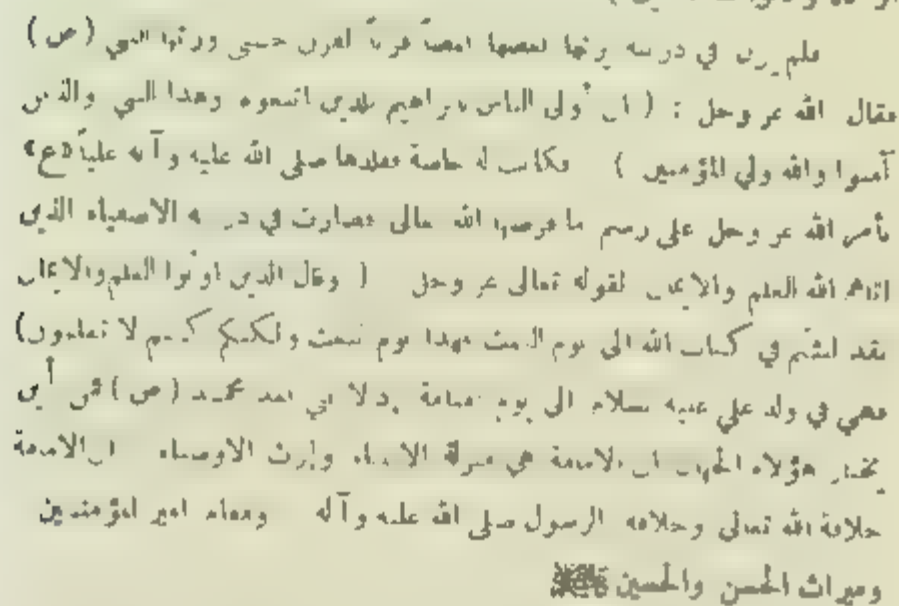 فلم يزل في ذريته يرثها بعضها بعضاً قرناً فقرن حتى ورثها النبي (ص)
فقال الله عز وجل : ( ان أولى الناس بابراهيم للذين اتبعوه وهذا النبي والذين
آمنوا والله ولي المؤمنين ) فكانت له خاصة فقلدها صلى الله عليه وآله علياً «ع»
بأمر الله عز وجل على رسم ما فرضها الله تعالى فصارت في ذريته الاصفياء الذين
اتاهم الله العلم والايمان لقوله تعالى عز وجل ( وقال الذين اوتوا العلم والايمان
لقد لبثتم في كتاب الله الى يوم البعث فهذا يوم البعث ولكنكم كنتم لا تعلمون)
فهي في ولد علي عليه السلام الى يوم القيامة إذ لا نبي بعد محمد (ص) فمن أين
يختار هؤلاء الجهال ان الامامة هي منزلة الانبياء وإرث الاوصياء ان الامامة
خلافة الله تعالى وخلافة الرسول صلى الله عليه وآله ومقام امير المؤمنين
وميراث الحسن والحسين